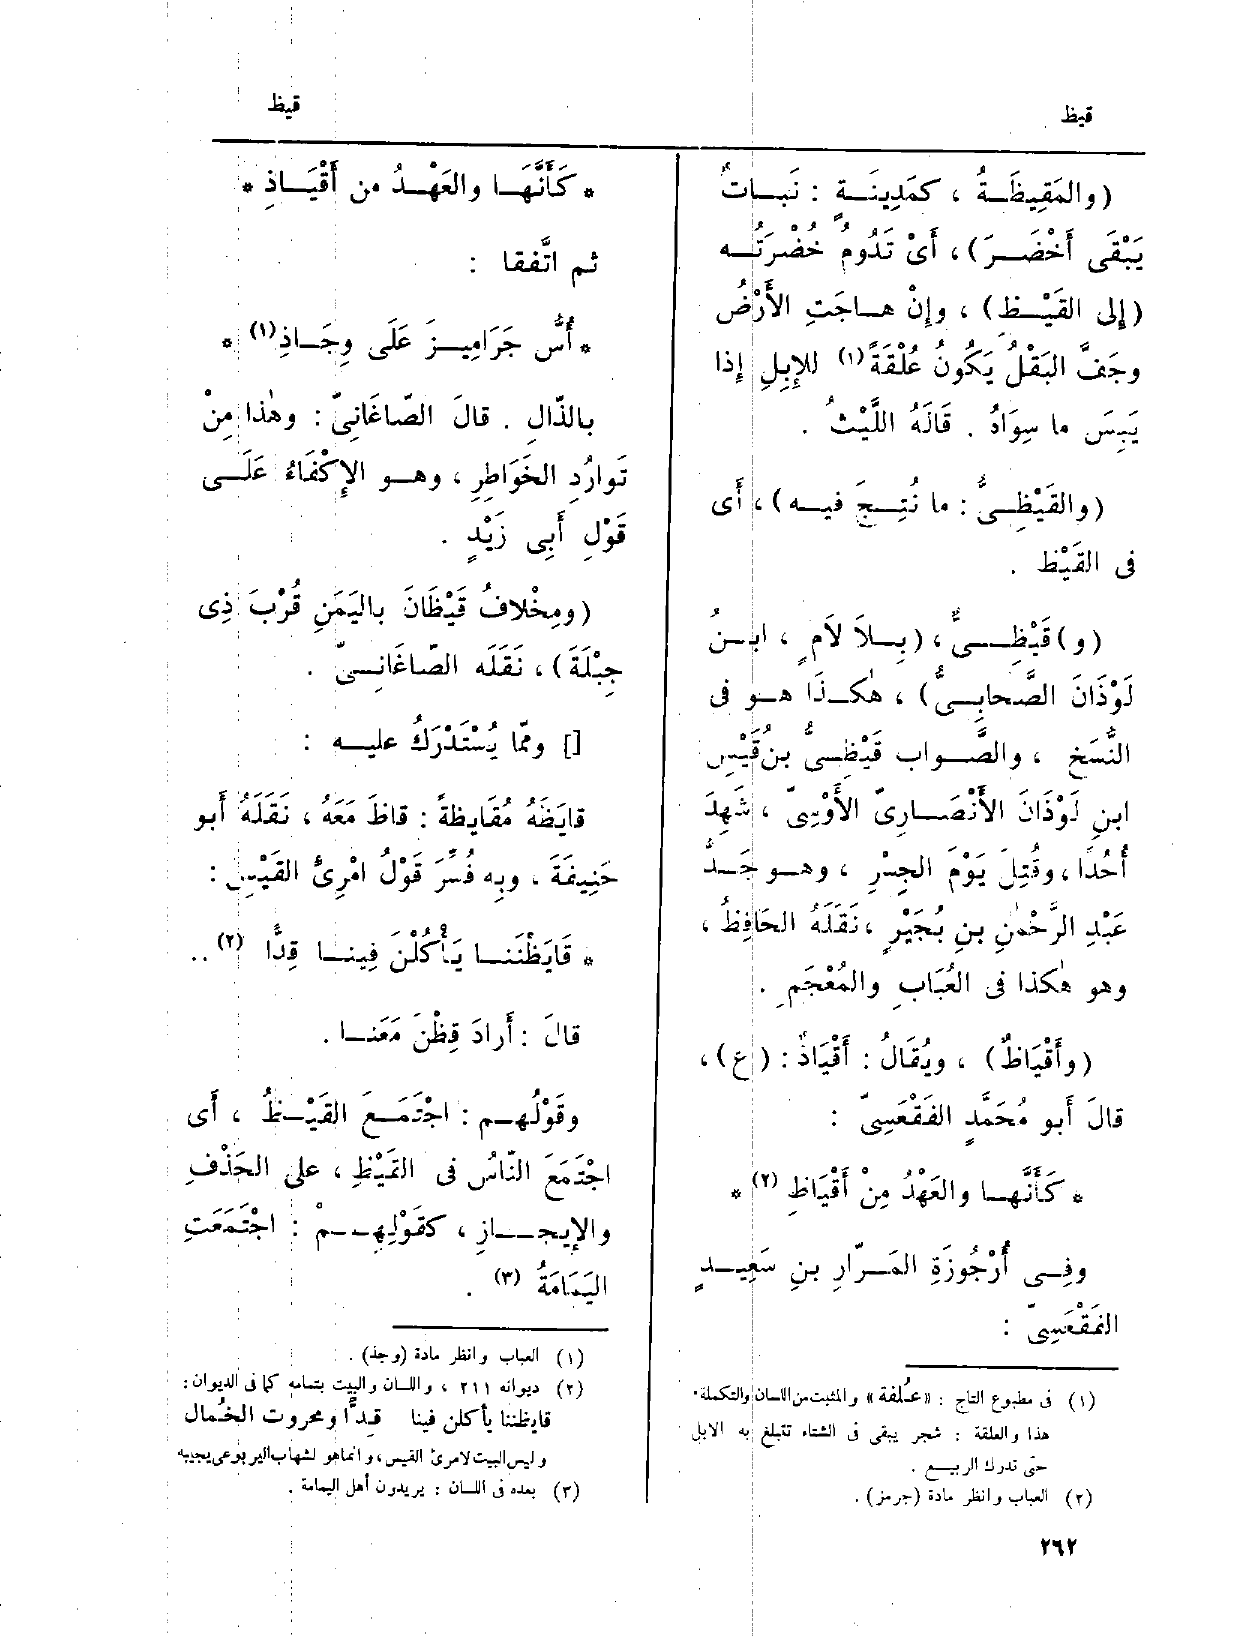 قيظ
قيظ
(والمَقِيظَةُ ، كمَدِينَة : نَبَاتٌ
يَبْقَى أَخْضَرَ) ، أَىْ تَدُومُ خُضْرَتُه
(إلى القَيْظ) ، وإِنْ هاجَتِ الأَرْضُ
وجَفَّ البَقْلُ يَكُونُ عُلْقَةً (١) للإِبِلِ إِذا
يَبِسَ ما سِوَاهُ . قَالَهُ اللَّيْثُ .
(والقَيْظِىُّ : ما نُتِجَ فيه) ، أَى
فى القَيْظ .
(و) قَيْظِىٌّ ، (بِلاَ لاَمٍ ، ابنُ
لَوْذَانَ الصَّحابِىُّ) ، هٰكذَا هو فى
النُّسَخِ ، والصَّواب قَيْظِىُّ بنُ قَيْسِ
ابنِ لَوْذَانَ الأَنْصَارِىّ الأَوْسِىّ ، شَهِدَ
أُحُدًا ، وقُتِلَ يَوْمَ الجِسْرِ ، وهو جَدُّ
عَبْدِ الرَّحْمٰنِ بنِ بُجَيْرٍ ، نَقَلَهُ الحَافِظُ ،
وهو هٰكذا فى العُبَابِ والمُعْجَمِ .
(وأَقْيَاظٌ) ، ويُقَالُ : أَقْيَاذٌ : (ع) ،
قالَ أَبو مُحَمَّدٍ الفَقْعَسِىّ :
* كَأَنَّها والعَهْدُ مِنْ أَقْيَاظِ (٢) *
وفِى أُرْجُوزَةِ المَرّارِ بنِ سَعِيدٍ
الفَقْعَسِىّ :
(١) فى مطبوع التاج : «عُلفة» والمثبت من اللسان والتكملة.
هذا والعلقة : شجر يبقى فى الشتاء تتبلغ به الابل
حتى تدرك الربيع .
(٢) العباب وانظر مادة (جرمز) .
٢٦٢
* كَأَنَّهَا والعَهْدُ من أَقْيَاذِ *
ثم اتَّفقا :
* أُسُّ جَرَامِيزَ عَلَى وِجَاذِ (١) *
بالذّالِ . قالَ الصّاغَانِىّ : وهٰذا مِنْ
تَوارُدِ الخَوَاطِرِ ، وهو الإِكْفَاءُ عَلَى
قَوْلِ أَبِى زَيْدٍ .
(ومِخْلافُ قَيْظَانَ باليَمَنِ قُرْبَ ذِى
جِبْلَةَ) ، نَقَلَه الصّاغَانِىّ .
[] وممّا يُسْتَدْرَكُ عليه :
قايَظَهُ مُقَايظَةً : قاظَ مَعَهُ ، نَقَلَهُ أَبو
حَنِيفَةَ . وبِه فُسِّرَ قَوْلُ امْرِئُ القَيْسِ :
* قَايَظْنَنا يَأْكُلْنَ فِينا قِدًّا (٢) ..
قالَ : أَرادَ قِظْنَ مَعَنا .
وقَوْلُهم : اجْتَمَعَ القَيْظُ ، أَى
اجْتَمَعَ النّاسُ فى القَيْظِ ، على الحَذْفِ
والإيجازِ ، كقَوْلِهِمْ : اجْتَمَعَتِ
اليَمَامَةُ (٣) .
(١) العباب وانظر مادة (وجذ) .
(٢) ديوانه ٢١١ ، واللسان والبيت بتمامه كما فى الديوان :
قايظننا يأكلن فينا قدًّا ومحروت الخُمال
وليس البيت لامرئ القيس ، وانما هو لشهاب اليربوعى يجيبه
(٣) بعده فى اللسان : يريدون أهل اليمامة .